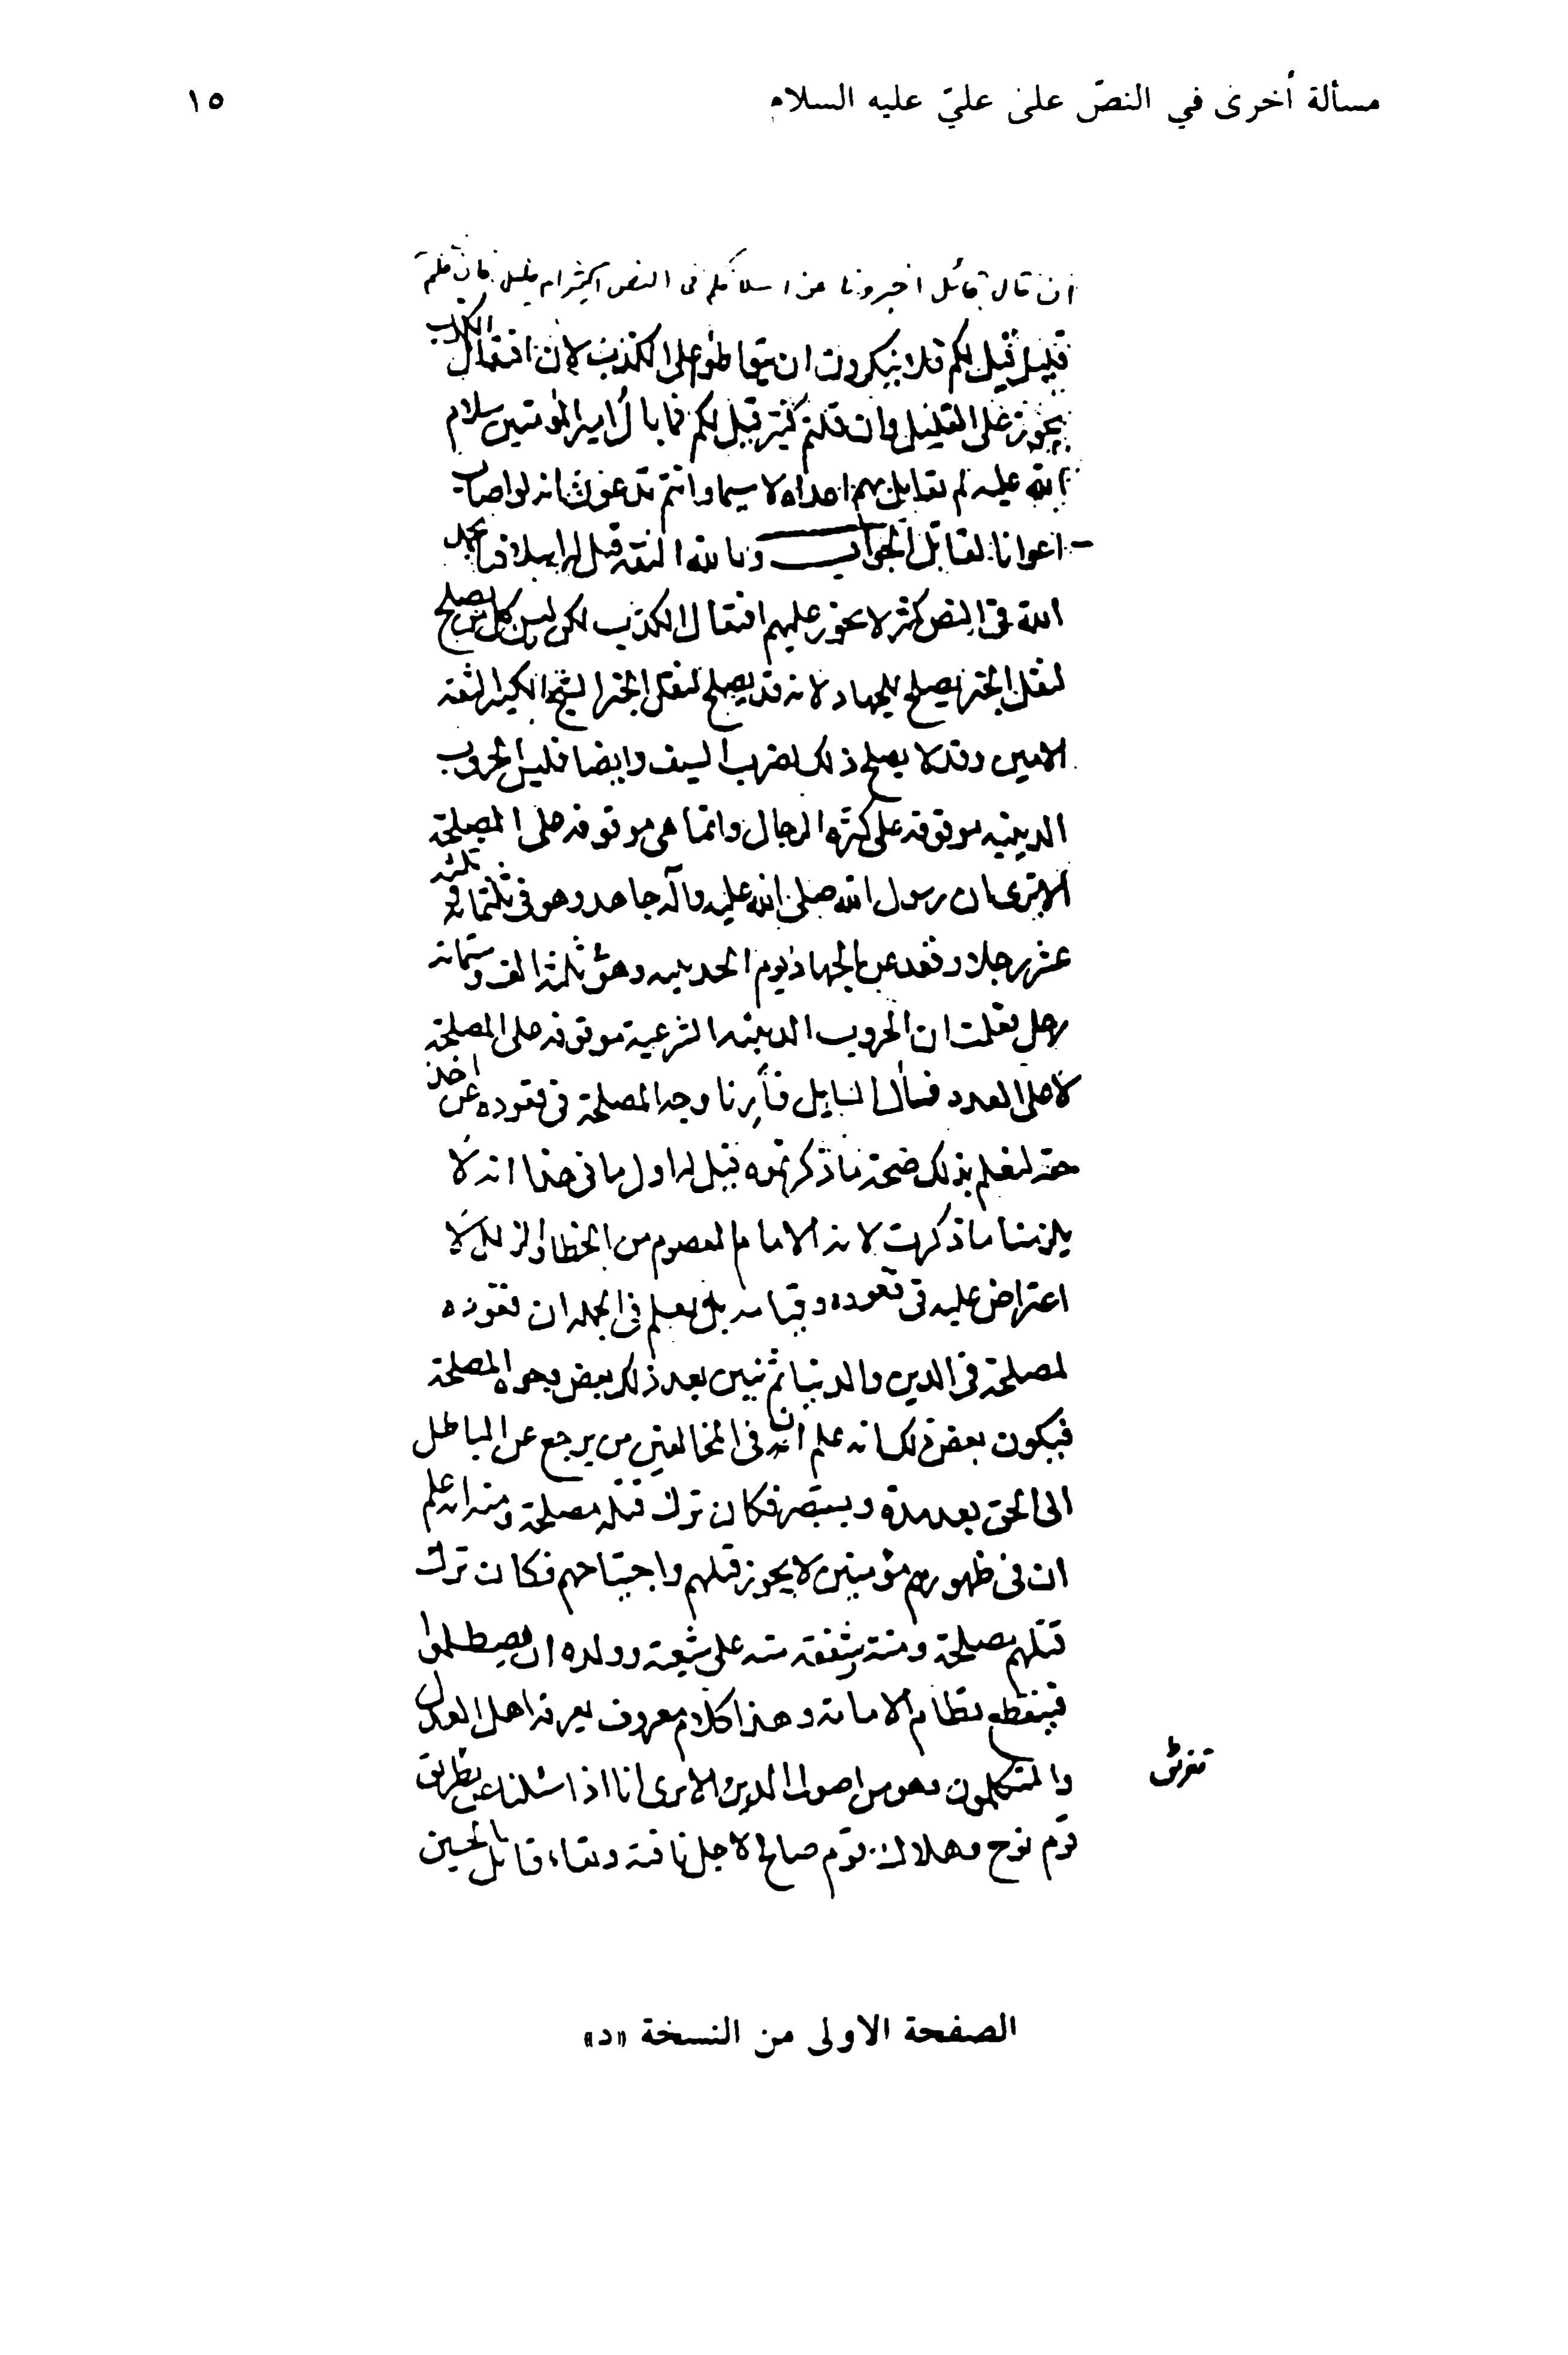 مسألة أخرى في النصّ على عليّ عليه السلام ١٥
ان قال قائل اخبرونا عن اسلافكم فى النص اكثير ام قليل فان قلتم
قليل قيل لكم فلا ينكرون ان يتواطؤا على الكذب لان افتعال الكذب
يجوز على القليل وان قلتم كثير قيل لكم فما بال امير المؤمنين سلام
الله عليه لم يقاتل بهم اعداه لا سيما وانتم تدعون انه لو اصاب
اعوانا لقاتل الجواب وبالله الثقة قيل له اسلافنا بحمد
الله فى النص كثر لا يجوز عليهم افتعال الكذب لكن ليس كل من يصلح
لنقل الخبر يصلح للجهاد لانه قد يصلح لنقل الخبر الشيخ الكبير الثقة
الامين وقد لا يصلح ذلك لضرب السيف وايضا فليس الحروب
الدينيه موقوفه على كثره الرجال وانما هى موقوفه على المصلحة
الا ترى ان رسول الله صلى الله عليه وآله جاهد وهو فى ثلثمائة وثلثه
عشر رجلا وقعد عن الجهاد يوم الحديبيه وهو فى ثلثه الف وستمائه
رجل فعلمت ان الحروب الدينيه الشرعية موقوفه على المصلحة
لا على العدد فسأل السايل فأرنا وجه المصلحة فى قعوده عن اخذ
حقه لنعلم بذلك صحة ما ذكرتموه قيل له اول ما فى هذا انه لا
يلزمنا ما ذكرت لانه الامام المعصوم من الخطا والزلل لا
اعتراض عليه فى قعوده وقيامه بل يعلم فى الجمله ان قعوده
لمصلحة فى الدين والدنيا ثم نبين بعد ذلك بعض وجوه المصلحة
فيكون بعض ذلك انه علم ان فى المخالفين من يرجع عن الباطل
الى الحق بعد مدة ويستبصر فكان ترك قتله مصلحة ومنه انه علم
ان فى ظهورهم مؤمنين لا يجوز قتلهم واجتياحهم فكان ترك
قتلهم مصلحة ومنه شفقة منه على شيعته وولده ان يصطلموا
فينقطع نظام الامامة وهذا كلام معروف يعرفه اهل العدل
والمتكلمون وهو من اصول الدين الا ترى انا اذا سئلنا عن تغريق
قوم نوح وهلاك قوم صالح لاجل ناقة وبقاء قاتل الحسين
الصفحة الاولى من النسخة «د»